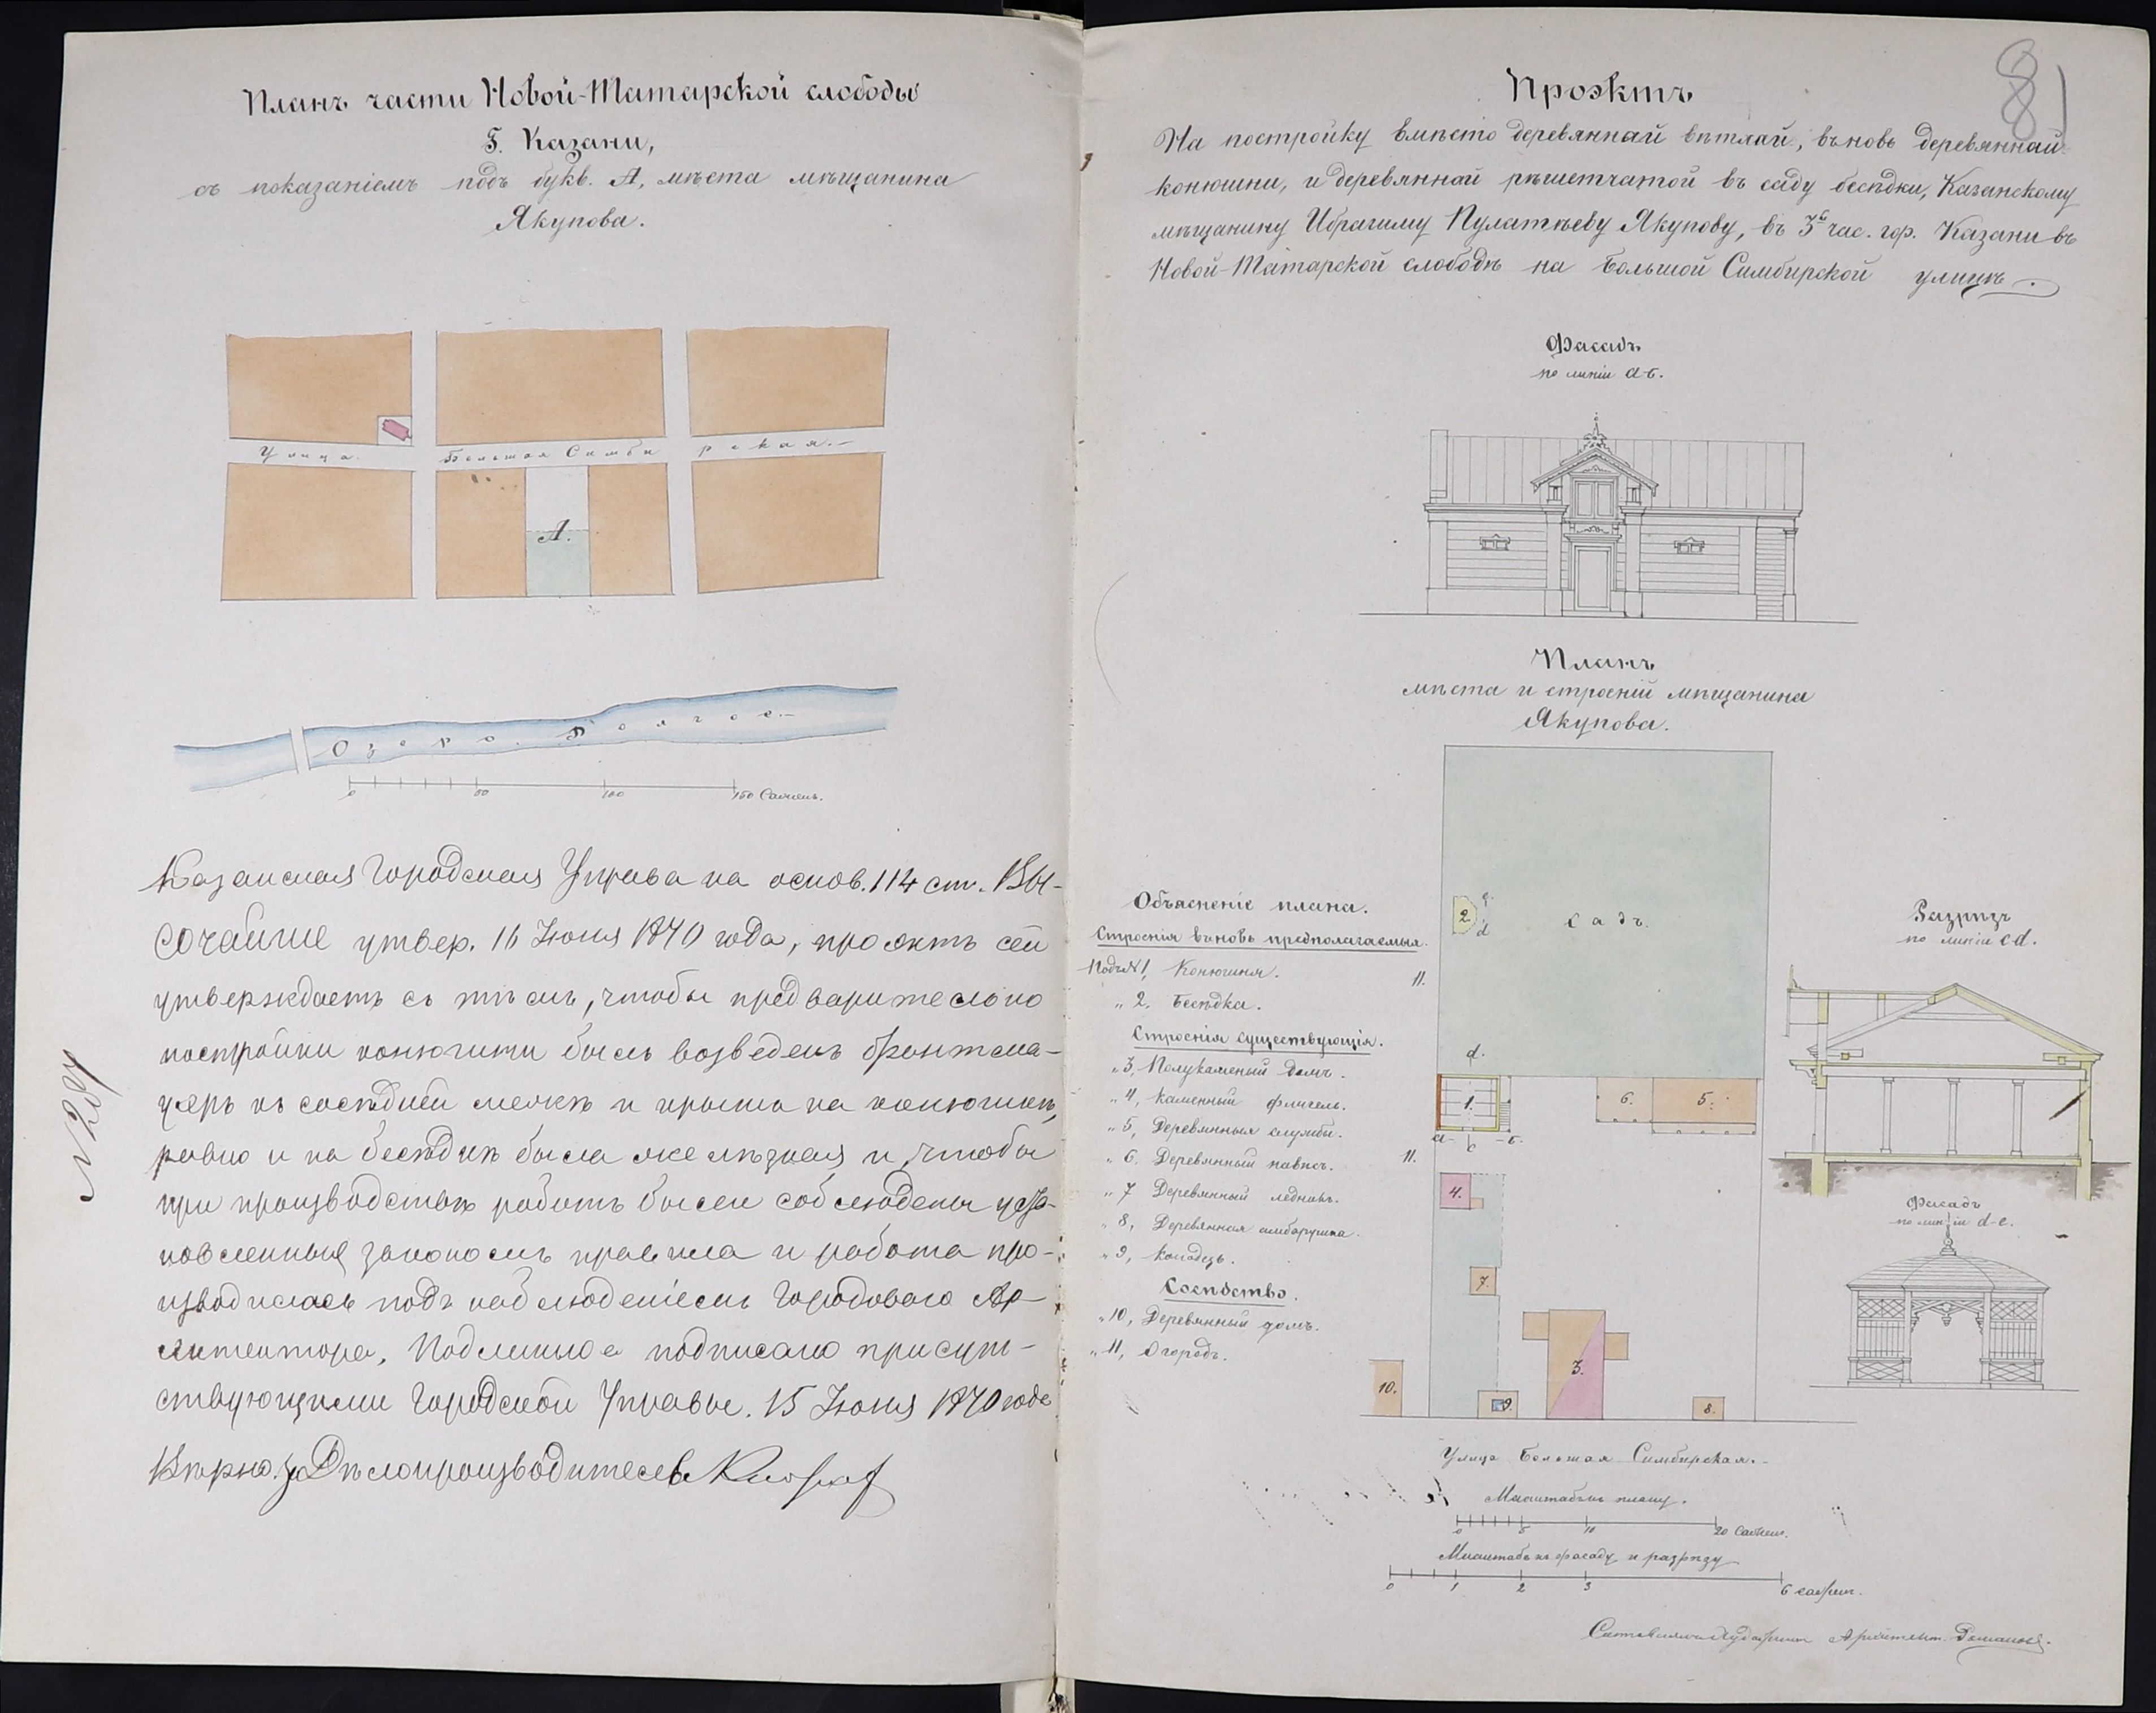 Планъ части Новой-Татарской слободы
Г. Казани,
съ показаніемъ подъ букв. А, мѣста мѣщанина
Якупова.
Улица Большая Симбирская.
А.
Озеро
0 50 100 150 Сажень.
Казанская Городская Управа на основ. 114 ст. Вы-
сочайше утвер. 16 Іюня 1870 года, проэктъ сей
утверждаетъ съ тѣмъ, чтобы предварительно
постройки конюшни былъ возведенъ брантмау-
уеръ къ сосѣдней межѣ и крыша на конюшнѣ,
равно и на бесѣдкѣ была желѣзная и, чтобы
при производствѣ работъ были соблюдены уста-
новленныя закономъ правила и работа про-
изводилась подъ наблюденіемъ Городового Ар-
хитектора, Подлинное подписано присут-
ствующими Городской Управы. 15 Іюня
Вѣрно. За Дѣлопроизводителя
81
Проэктъ
На постройку вмѣсто деревяннай вѣтлай, въновь деревяннай
конюшни, и деревяннай рѣшетчатой въ саду бесѣдки, Казанскому
мѣщанину Ибрагиму Пулатѣеву Якупову, въ 3й час. гор. Казани въ
Новой-Татарской слободѣ на Большой Симбирской улицѣ.
Фасадъ
по линіи а-б.
Планъ
мѣста и строеній мѣщанина
Якупова.
Объясненіе плана.
Строенія въновь предполагаемыя.
Подъ № 1, Конюшня.
„ 2. Бесѣдка.
Строенія существующія.
„ 3, Полукаменный домъ.
„ 4, Каменный флигель.
„ 5, Деревянныя службы.
„ 6. Деревянный навѣсъ.
„ 7 Деревянный ледникъ.
„ 8, Деревянная амбарушка.
„ 9, Колодезь.
Сосѣдство.
„ 10, Деревянный домъ.
„ 11, Огородъ.
2. е. d
Садъ.
11.
d.
1.
6. 5.
а- с -б.
11.
4.
7.
3.
10.
9.
8.
Улица Большая Симбирская.
Масштабъ плану.
0 5 10 20 Сажень.
Масштабъ къ фасаду и разрѣзу
0 1 2 3 6 сажен.
Разрѣзъ
по линіи cd.
Фасадъ
по линіи d-e.